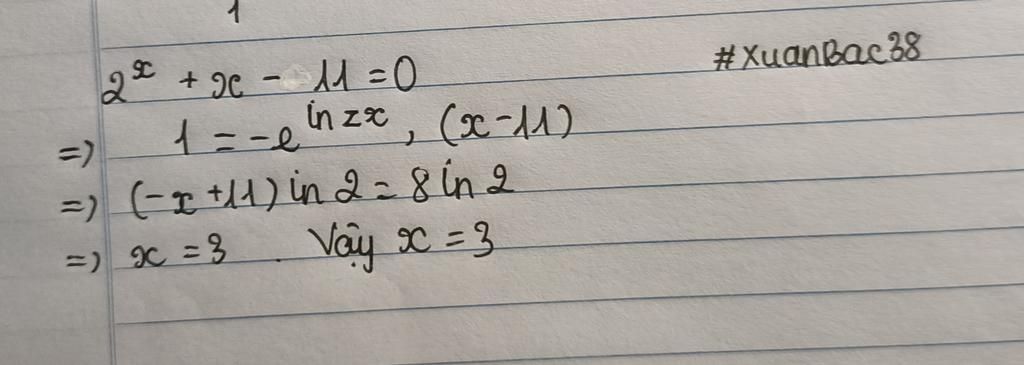 2^x + x - 11 = 0 #XuanBac38
=) 1 = -e^{ln 2x}, (x-11)
=) (-x + 11) ln 2 = 8 ln 2
=) x = 3 . Vậy x = 3